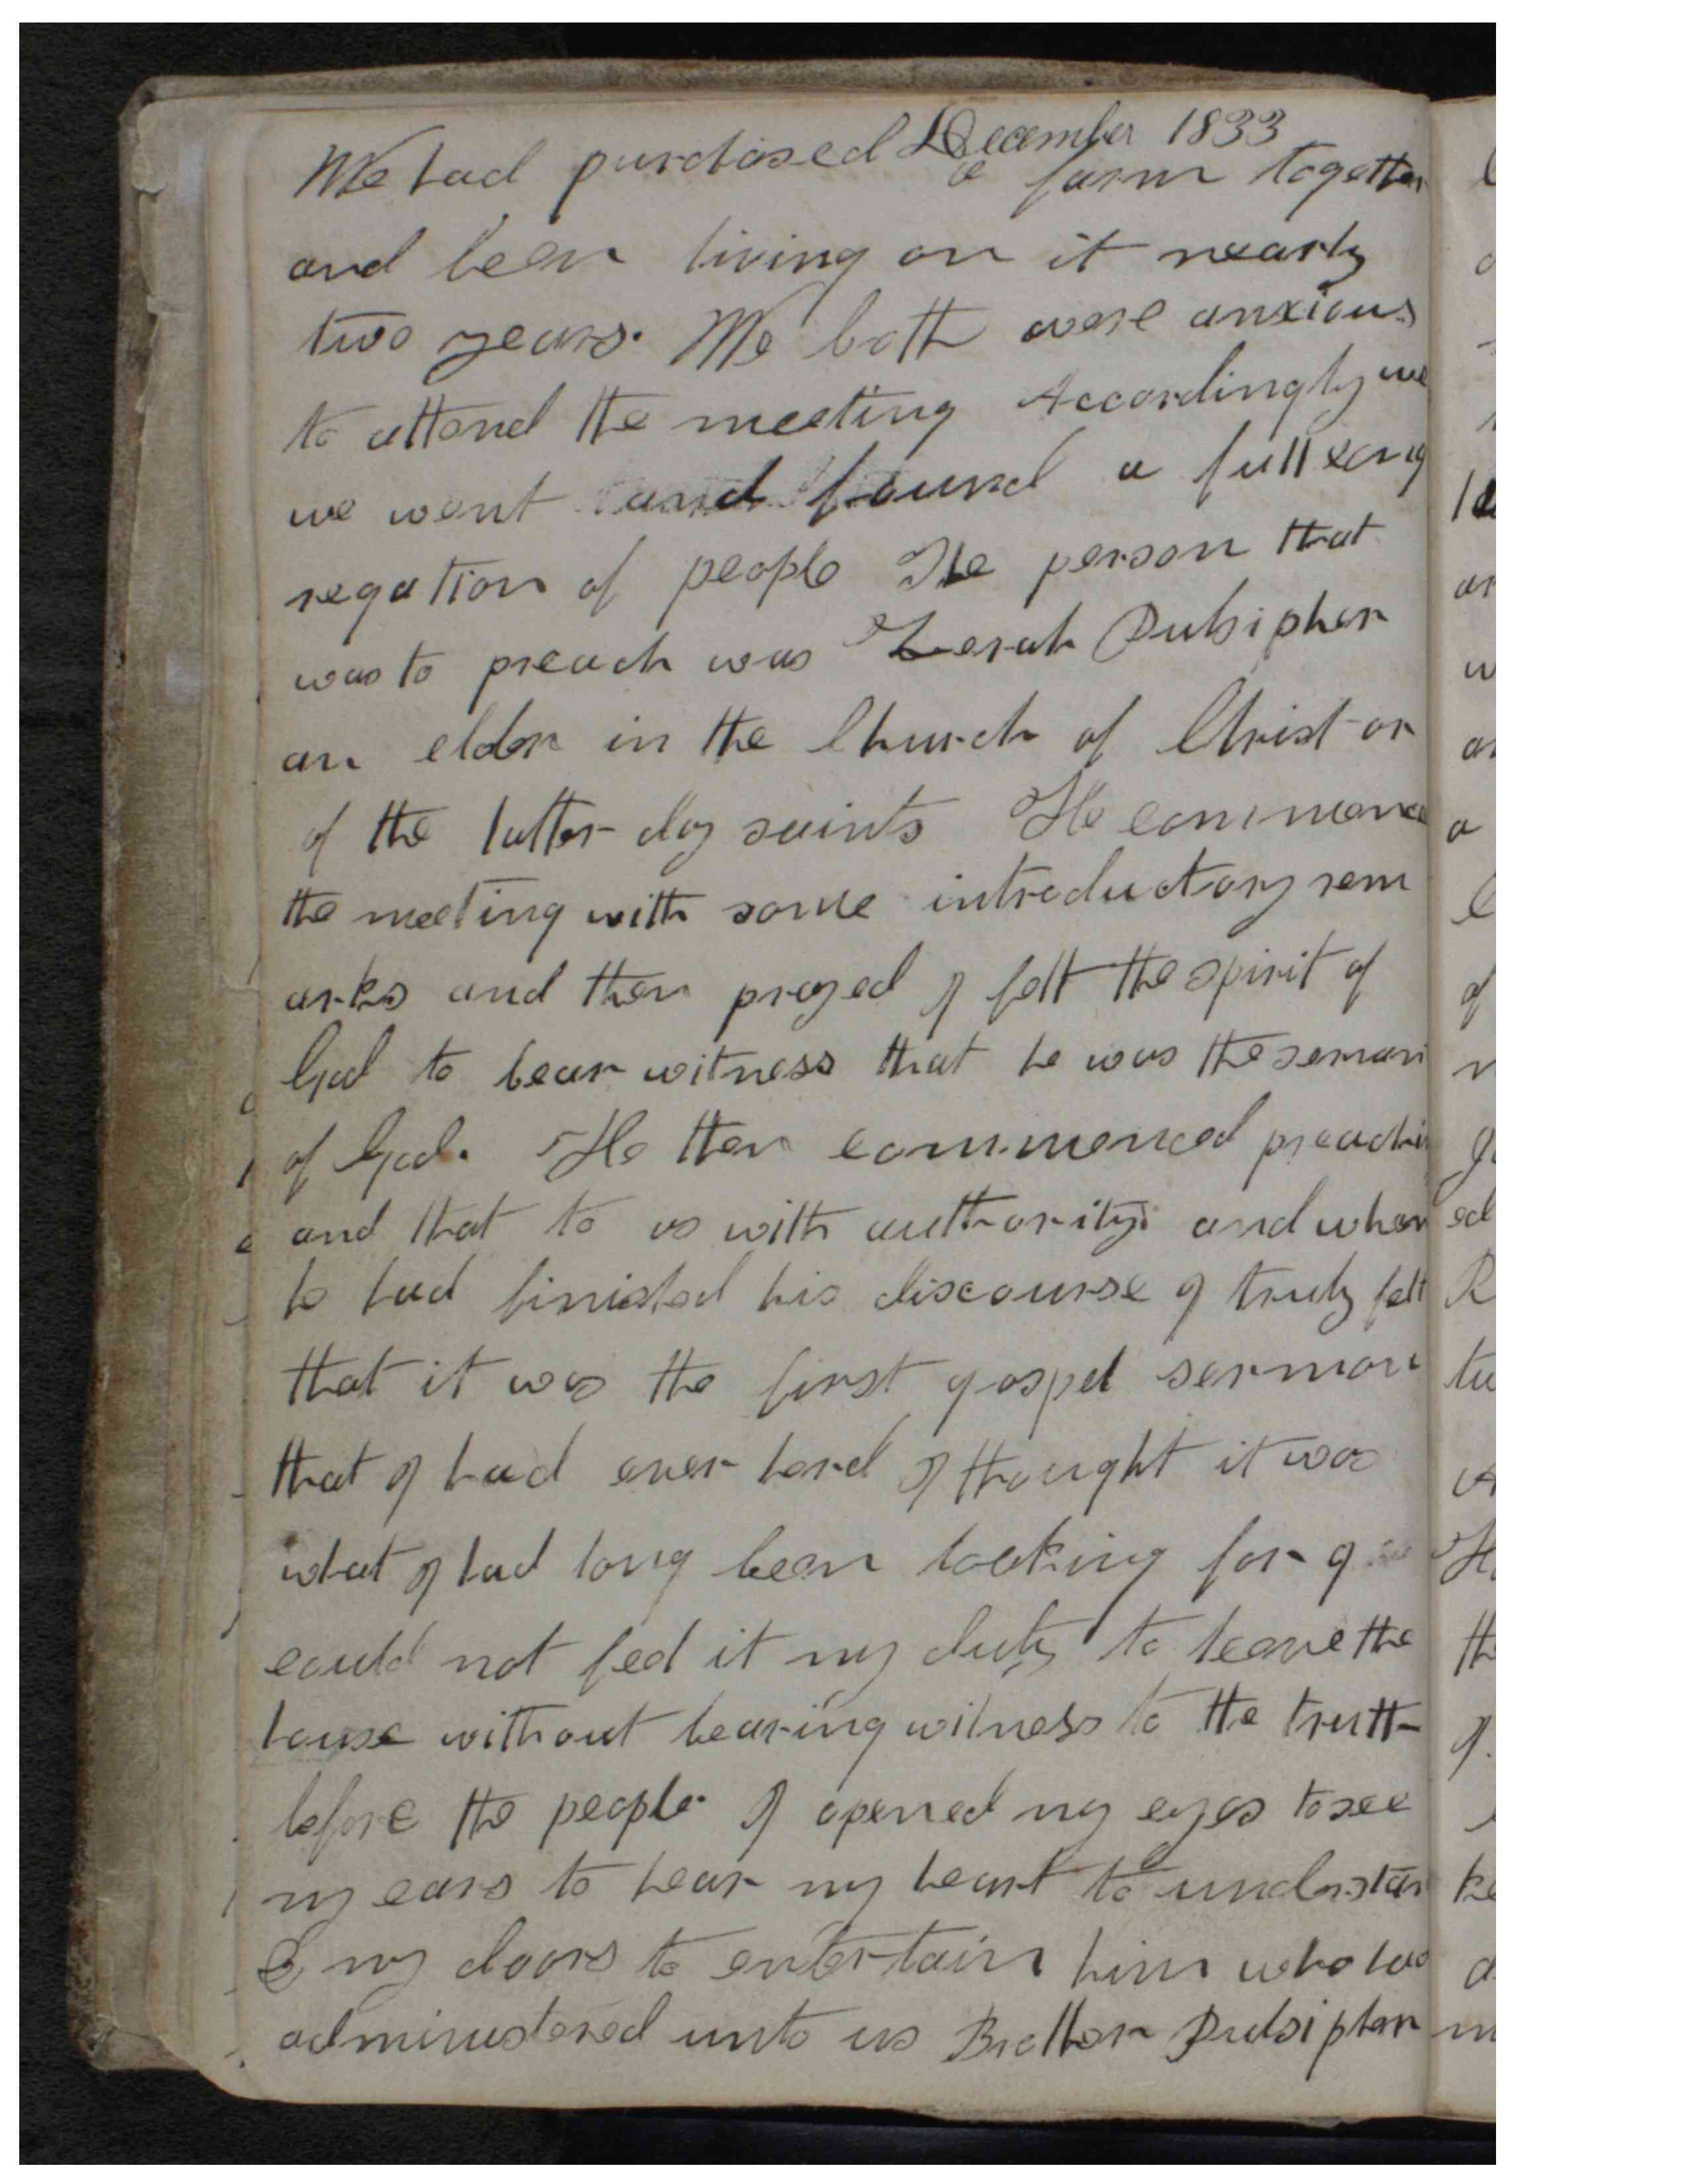 December 1833
We had purchased a farm together
and been living on it nearly
two years. We both were anxious
to attend the meeting Accordingly we
we went and found a full cong
regation of people The person that
was to preach was Zerah Pulsipher
an elder in the Church of Christ or
of the latter day saints He commence
the meeting with some introductory rem
arks and then prayed I felt the spirit of
God to bear witness that he was the servan
of God. He then commenced preachi
and that to us with authority and when
he had finished his discourse I truly felt
that it was the first gospel sermon
that I had ever herd I thought it was
what I had long been looking for I
could not feel it my duty to leave the
house without bearing witness to the truth
before the people I opened my eyes to see
my ears to hear my heart to understan
& my doors to entertain him who had
administered unto us Brother Pulsipher